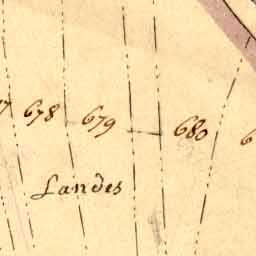 678 679 680
Landes